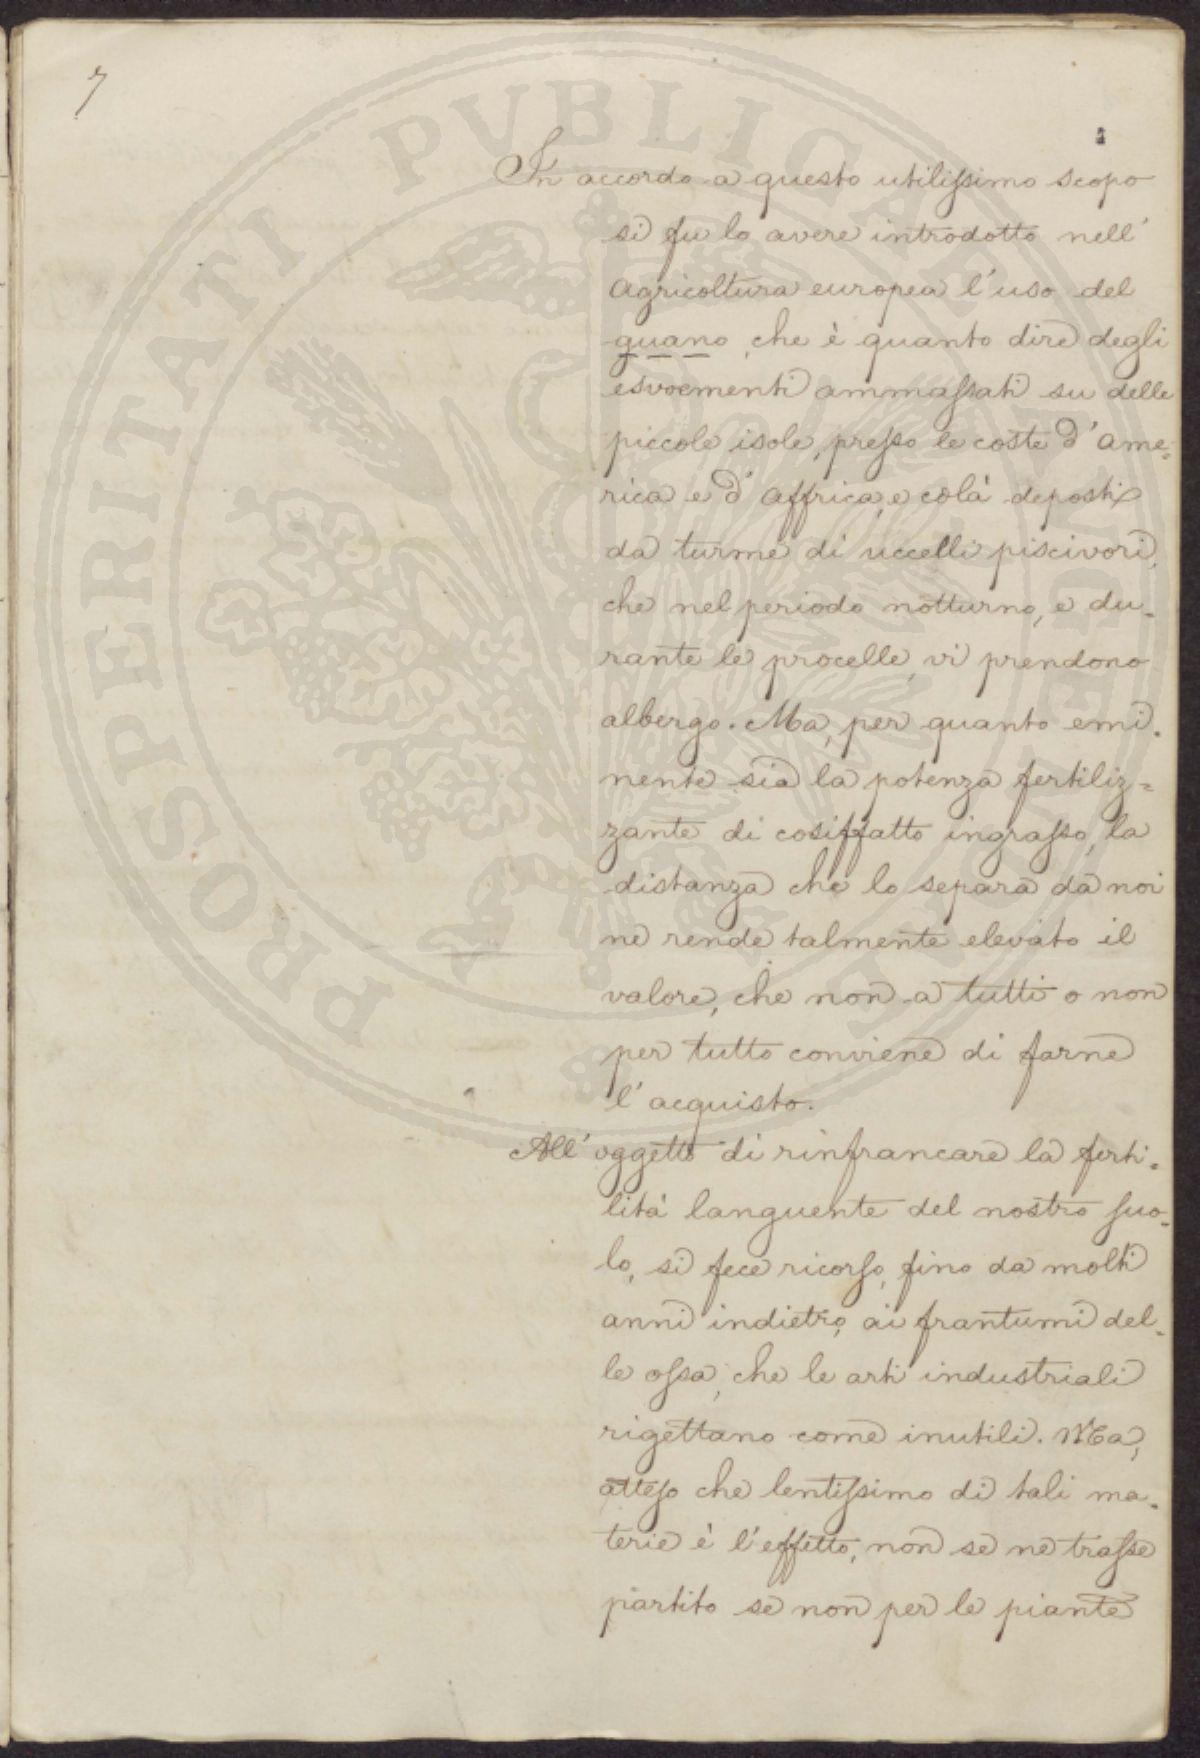 7
1
In accordo a questo utilissimo scopo
si fu lo avere introdotto nell'
agricoltura europea l'uso del
guano, che è quanto dire degli
escrementi ammassati su delle
piccole isole, presso le coste d'Ame=
rica e d'Affrica, e colà deposti
da turme di uccelli piscivori,
che nel periodo notturno, e du-
rante le procelle, vi prendono
albergo. Ma, per quanto emi-
nente sia la potenza fertiliz=
zante di cosiffatto ingrasso, la
distanza che lo separa da noi
ne rende talmente elevato il
valore, che non a tutti o non
per tutto conviene di farne
l'acquisto.
All'oggetto di rinfrancare la ferti-
lità languente del nostro suo-
lo, si fece ricorso, fino da molti
anni indietro, ai frantumi del-
le ossa, che le arti industriali
rigettano come inutili. Ma,
atteso che lentissimo di tali ma-
terie è l'effetto, non se ne trasse
partito se non per le piante
PROSPERITATI PVBLICAE AVGENDAE